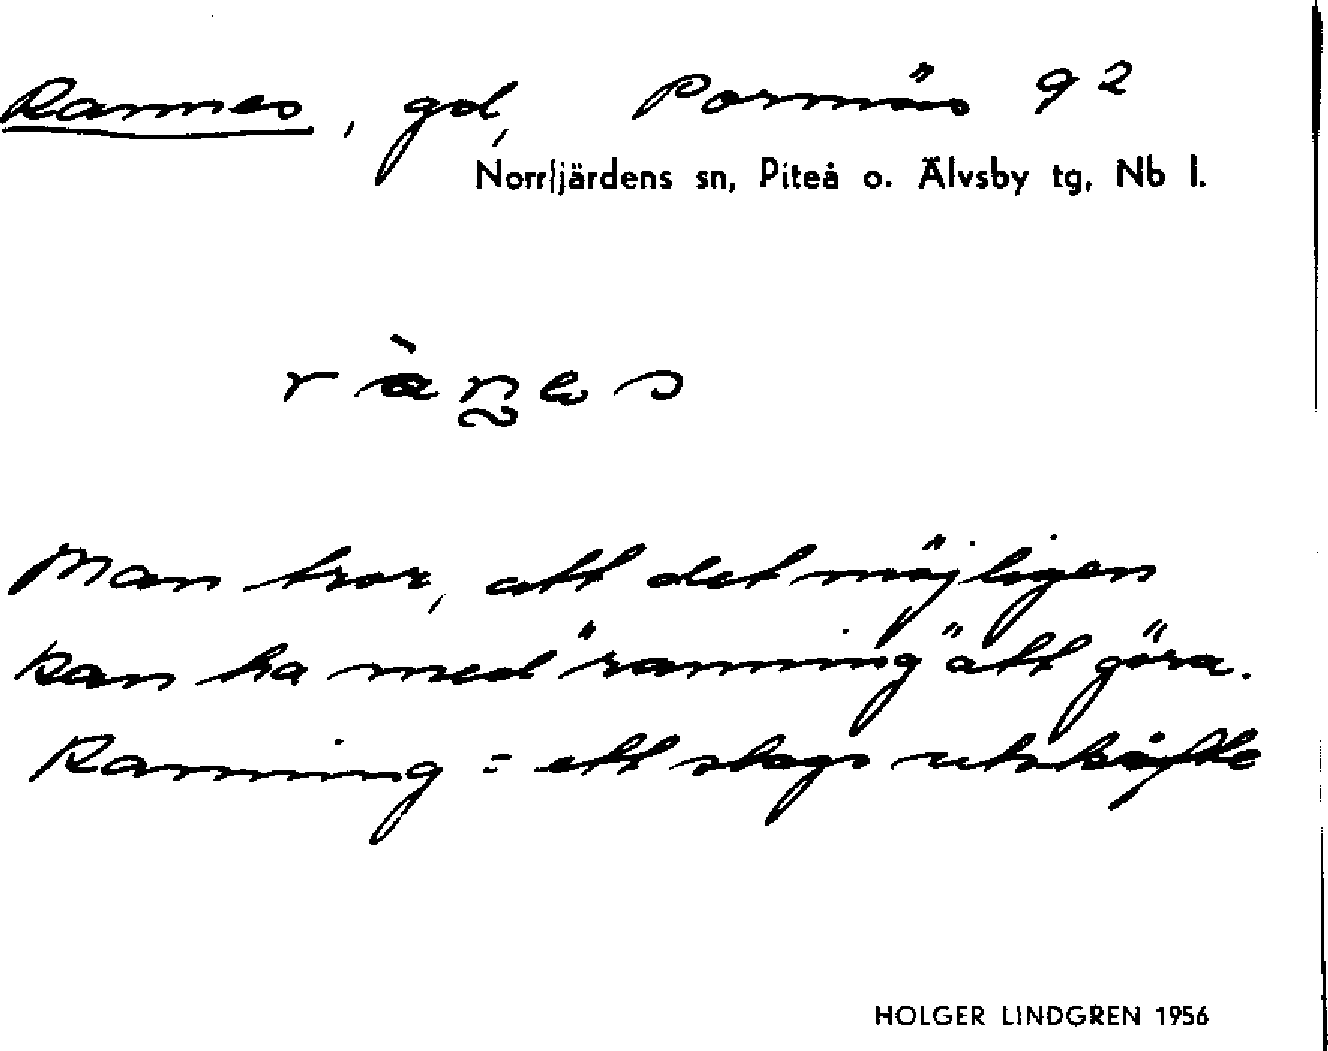 Rannes, gd, Porsnäs 92
Norrfjärdens sn, Piteå o. Älvsby tg, Nb l.
ràn̰es
Man tror, att det möjligen
kan ha med "ranning" att göra.
Ranning = ett slags utskifte
HOLGER LINDGREN 1956